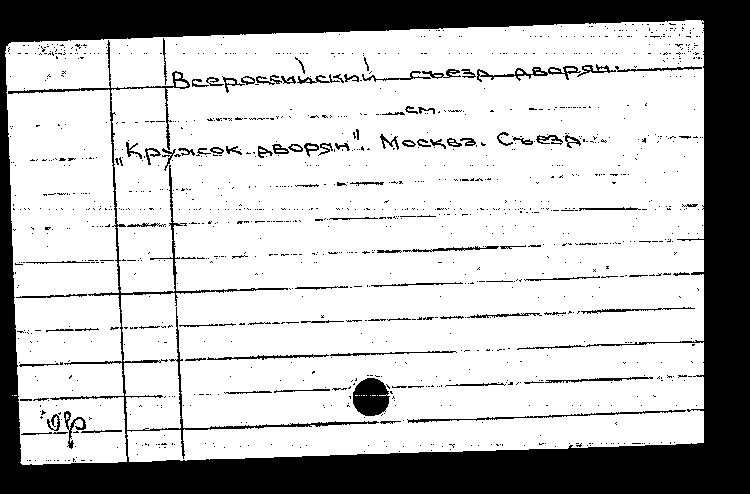 Всероссийский съезд дворян.
см.
„Кружок дворян". Москва. Съезд